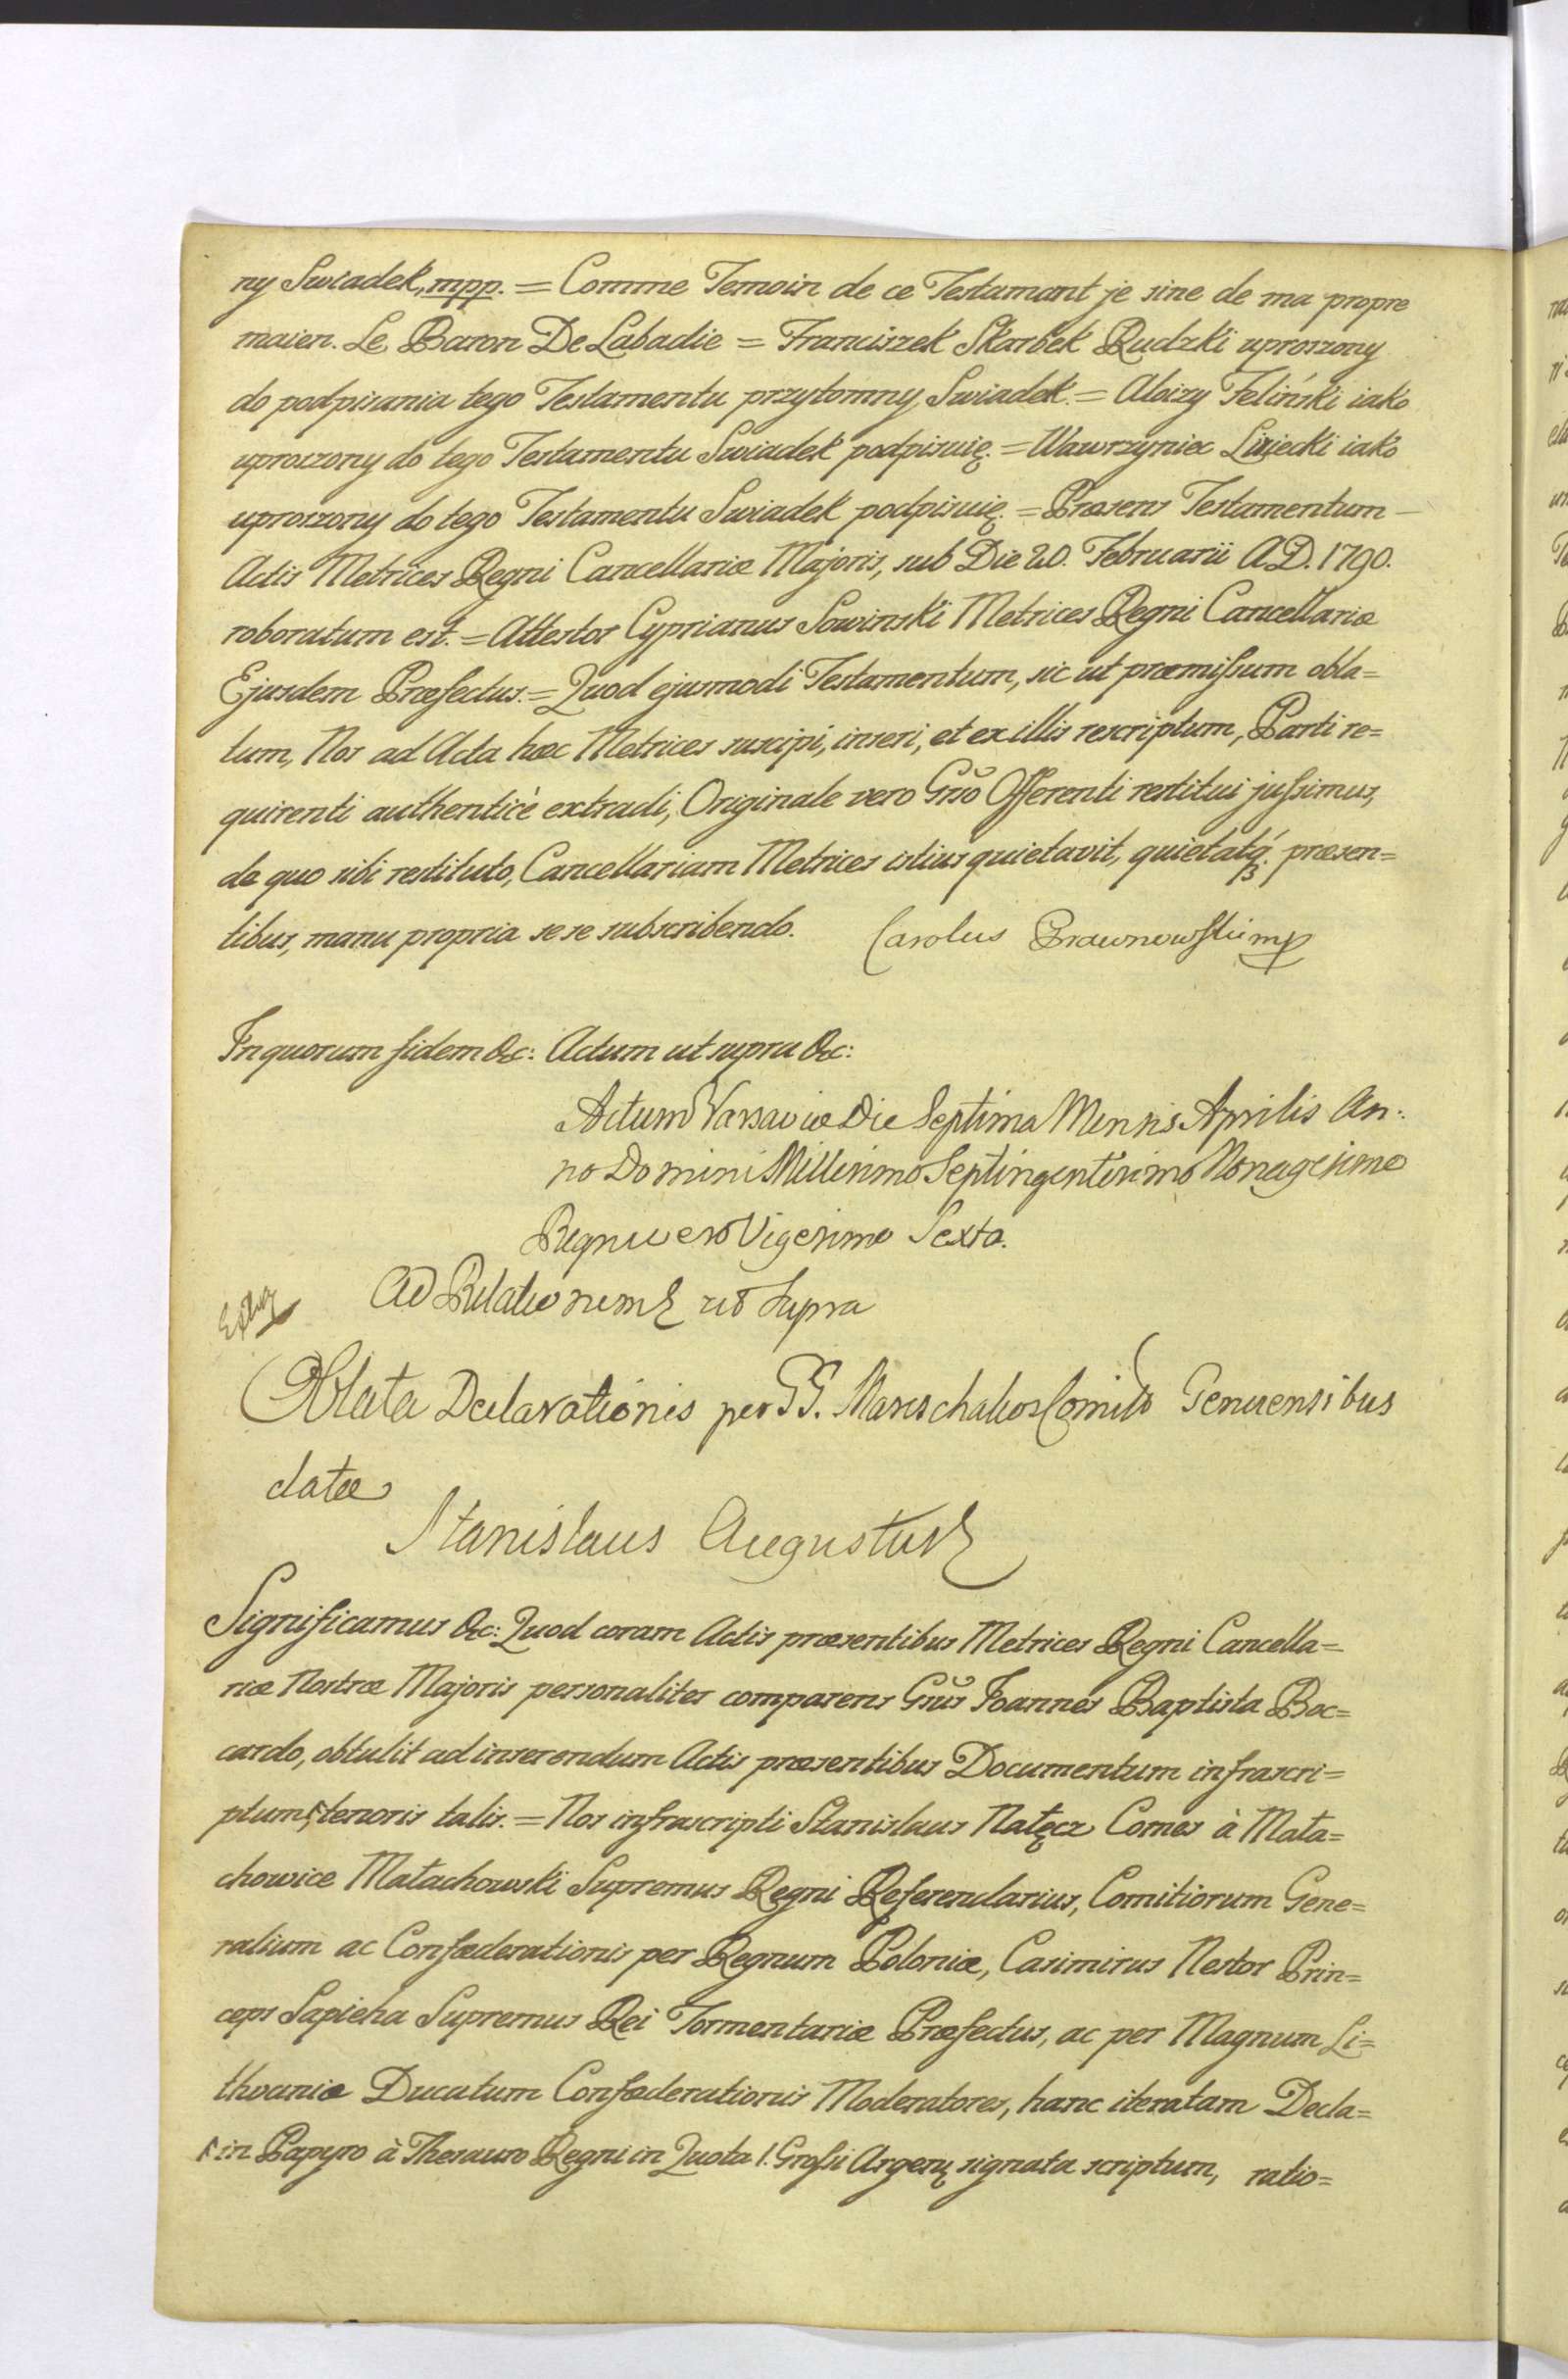 ny Swiadek, mpp. = Comme Temoin de ce Testamant je sine de ma propre
maien. Le Baron De Labadie = Franciszek Skarbek Rudzki uproszony
do podpisania tego Testamentu przytomny Swiadek. = Aloizy Feliński iako
uproszony do tego Testamentu Swiadek podpisuię. = Wawrzyniec Lisiecki iako
uproszony do tego Testamentu Swiadek podpisuię. = Præsens Testamentum
Actis Metrices Regni Cancellariæ Majoris, sub Die 20. Februarii A.D. 1790.
roboratum est. = Attestor Cyprianus Sowinski Metrices Regni Cancellariæ
Ejusdem Præfectus. = Quod ejusmodi Testamentum, sic ut præmissum obla=
tum, Nos ad Acta hæc Metrices suscipi, inseri, et ex illis rescriptum, Parti re=
quirenti authenticè extradi, Originale vero Gñso Offerenti restitui jussimus,
de quo sibi restituto, Cancellariam Metrices istius quietavit, quietatq́. præsen=
tibus, manu propria se se subscribendo. Carolus Brawnowski mp
In quorum fidem &c: Actum ut supra &c:
Actum Varsaviæ Die Septima Mensis Aprilis An:
no Domini Millesimo Septingentesimo Nonagesimo
Regni vero Vigesimo Sexto.
Ad Relationem ut Supra
Oblata Declarationis per GG. Mareschalcos Comitt Genuensibus
datæ
Stanislaus Augustus
Significamus &c: Quod coram Actis præsentibus Metrices Regni Cancella=
riæ Nostræ Majoris personaliter comparens Gñsus Joannes Baptista Boc=
cardo, obtulit ad inserendum Actis præsentibus Documentum infrascri=
ptum, tenoris talis. = Nos infrascripti Stanislaus Natęcz Comes à Mata=
chowice Matachowski Supremus Regni Referendarius, Comitiorum Gene=
ralium ac Confæderationis per Regnum Poloniæ, Casimirus Nestor Prin=
ceps Sapieha Supremus Rei Tormentariæ Præfectus, ac per Magnum Li=
thvaniæ Ducatum Confæderationis Moderatores, hanc iteratam Decla=
in Papyro à Thesauro Regni in Quota 1. Grossi Argenṭ signata scriptum, ratio=